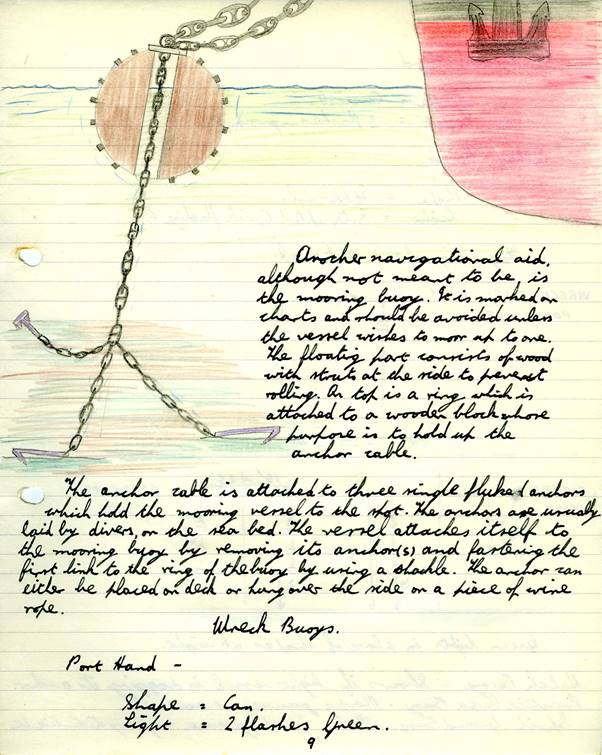 Another navigational aid,
although not meant to be, is
the mooring buoy. It is marked on
charts and should be avoided unless
the vessel wishes to moor up to one.
The floating part consists of wood
with struts at the side to prevent
rolling. On top is a ring which is
attached to a wooden block whose
purpose is to hold up the
anchor cable.
The anchor cable is attached to three single fluked anchors
which hold the mooring vessel to the spot. The anchors are usually
laid by divers, on the sea bed. The vessel attaches itself to
the mooring buoy by removing its anchor(s) and fastening the
first link to the ring of the buoy by using a shackle. The anchor can
either be placed on deck or hung over the side on a piece of wire
rope.
Wreck Buoys.
Port Hand -
Shape = Can.
Light = 2 flashes Green.
9